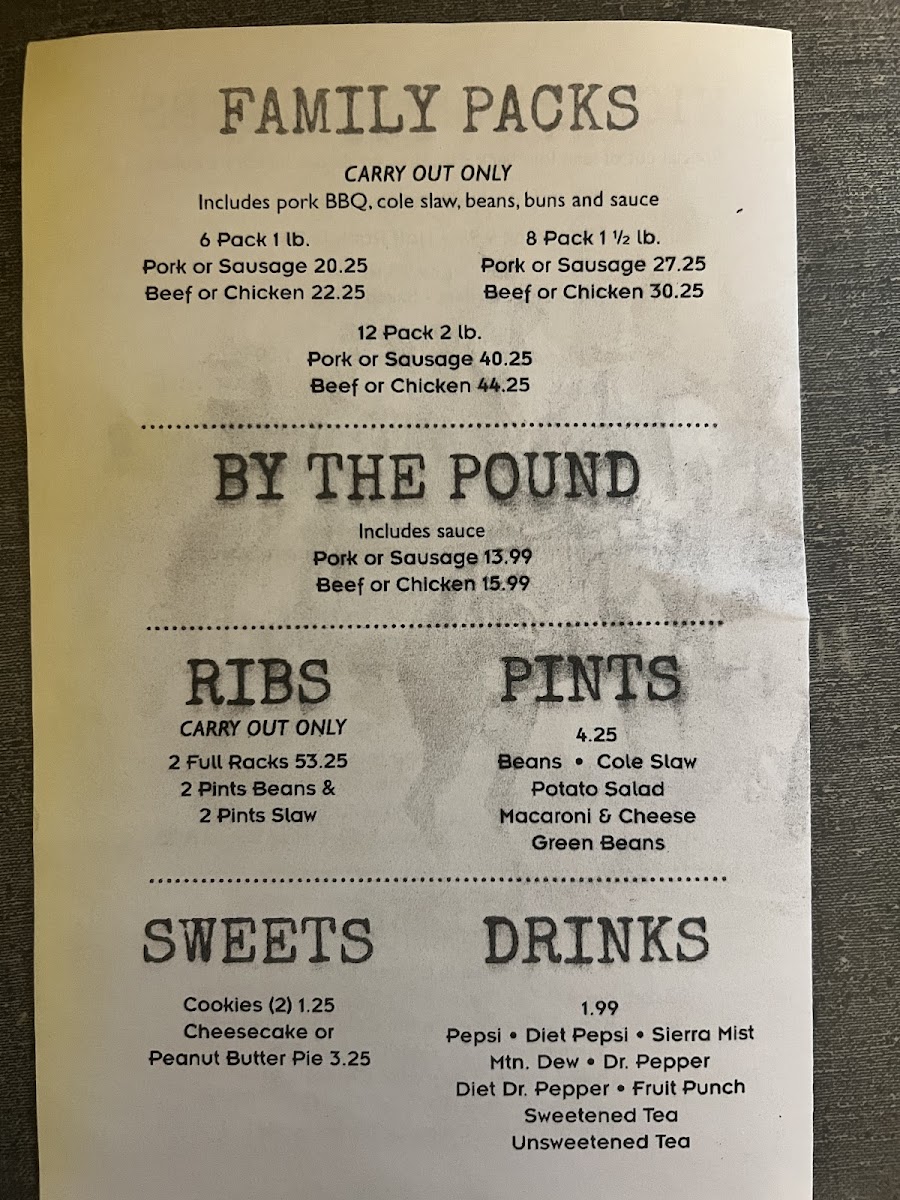 FAMILY PACKS
CARRY OUT ONLY
Includes pork BBQ, cole slaw, beans, buns and sauce
6 Pack 1 lb.
Pork or Sausage 20.25
Beef or Chicken 22.25
8 Pack 1 ½ lb.
Pork or Sausage 27.25
Beef or Chicken 30.25
12 Pack 2 lb.
Pork or Sausage 40.25
Beef or Chicken 44.25
BY THE POUND
Includes sauce
Pork or Sausage 13.99
Beef or Chicken 15.99
RIBS
CARRY OUT ONLY
2 Full Racks 53.25
2 Pints Beans &
2 Pints Slaw
PINTS
4.25
Beans • Cole Slaw
Potato Salad
Macaroni & Cheese
Green Beans
SWEETS
Cookies (2) 1.25
Cheesecake or
Peanut Butter Pie 3.25
DRINKS
1.99
Pepsi • Diet Pepsi • Sierra Mist
Mtn. Dew • Dr. Pepper
Diet Dr. Pepper • Fruit Punch
Sweetened Tea
Unsweetened Tea